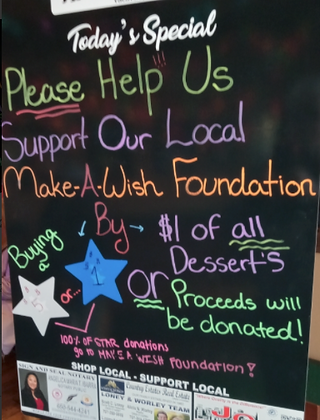 Today's Special
Please Help Us !!!
Support Our Local
Make-A-Wish Foundation
By
Buying
a
$1
or...
or
$1 of all
Dessert's
Proceeds will
be donated!
100% of STAR donations
go to MAKE A WISH Foundation!
SHOP LOCAL - SUPPORT LOCAL
SIGN AND SEAL NOTARY
LOREY & WORLEY TEAM